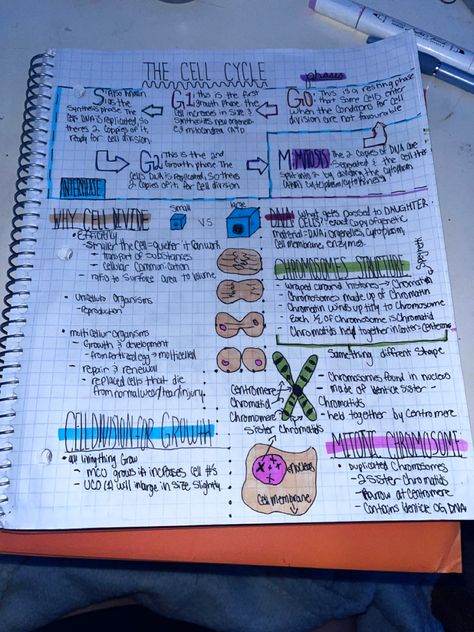 THE CELL CYCLE
phases
S: Also known as the Synthesis phase. The cells DNA is replicated, so there's 2 copies of it, ready for cell division.
G1: this is the first growth phase the cell increases in size & synthesises new organelles
G0: This is a resting phase that some cells enter when the conditions for cell division are not favourable
G2: This is the 2nd growth phase. The cells DNA is replicated, so there's 2 copies of it, for cell division
M: MITOSIS The 2 copies of DNA are seperated & the cell then
by dividing the cytoplasm
INTERPHASE
WHY CELL DIVIDE
• Efficiently
- smaller the cell = quicker it can work
- transport of substances
- cellular communication
- ratio to surface area to volume
• Unicellular organisms
- Reproduction
• multicellular organisms
- Growth & development
- from fertilized egg → multicelled
- repair & renewal
- replaced cells that die from normal wear/tear/injury
Small
VS
large
DNA
What gets passed to DAUGHTER CELLS?
- exact copy of genetic material = DNA
- organelles, cytoplasm, cell membrane, enzymes
CHROMOSOMES STRUCTURE
- wraped around histones → Chromatin
- Chromosomes made up of Chromatin
- Chromatin winds up tightly to Chromosome
- Each 1/2 of Chromosome is Chromatid
- Chromatids held together in
Something diffrent shape
- Chromosomes found in nucleus
- made of identical sister Chromatids
- held together by centromere
Centromere
Chromatid
Sister Chromatids
CELL DIVISION OF GROWTH
• all living thing Grow
- MCO grows if increases cell #'s
- UCO (1) will enlarge in size slightly.
nucleus
cell membrane
MEIOTIC CHROMOSOME
• Duplicated Chromosomes
- 2 Sister Chromatids
- narrow at centromere
- contains identical OG DNA